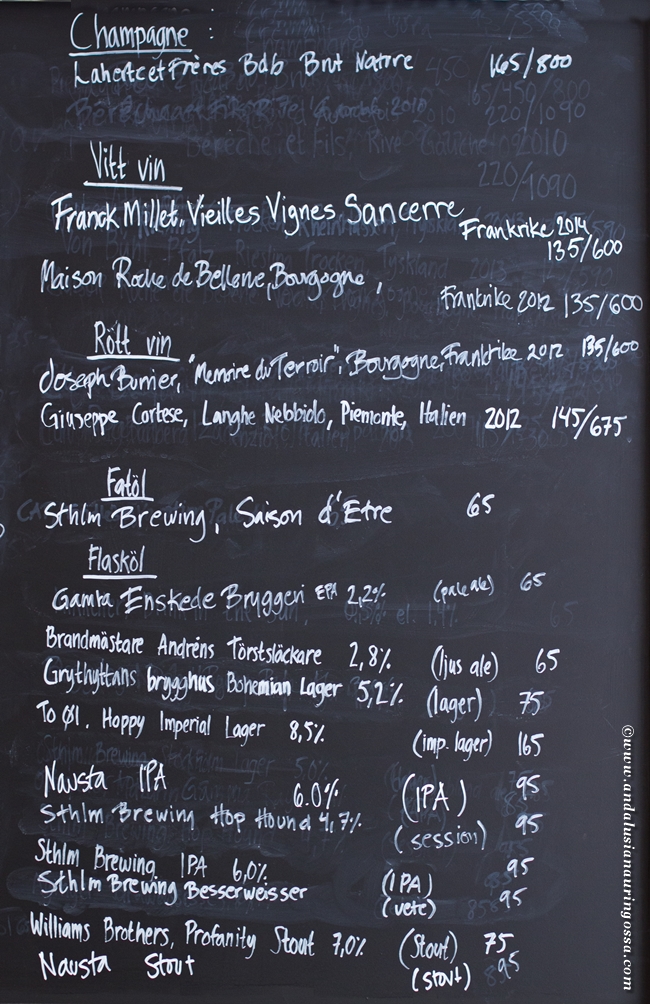 Champagne :
Laherte et Frères Bdb Brut Nature 165/800
Vitt vin
Franck Millet, Vieilles Vignes Sancerre
Frankrike 2014
135/600
Maison Roche de Bellene, Bourgogne,
Frankrike 2012 135/600
Rött vin
Joseph Burrier, "Memoire du Terroir", Bourgogne, Frankrike 2012 135/600
Giuseppe Cortese, Langhe Nebbiolo, Piemonte, Italien 2012 145/675
Fatöl
Sthlm Brewing, Saison d'Etre 65
Flasköl
Gamla Enskede Bryggeri EPA 2,2% (pale ale) 65
Brandmästare Andréns Törstsläckare 2,8% (ljus ale) 65
Grythyttans brygghus Bohemian Lager 5,2% (lager) 75
To Øl. Hoppy Imperial Lager 8,5% (imp. lager) 165
Nausta IPA 6.0% (IPA) 95
Sthlm Brewing Hop Hound 4,7% (session) 95
Sthlm Brewing IPA 6,0% (IPA) 95
Sthlm Brewing Besserweisser (vete) 95
Williams Brothers, Profanity Stout 7,0% (Stout) 75
Nausta Stout (stout) 95
©www.andalusianauringossa.com